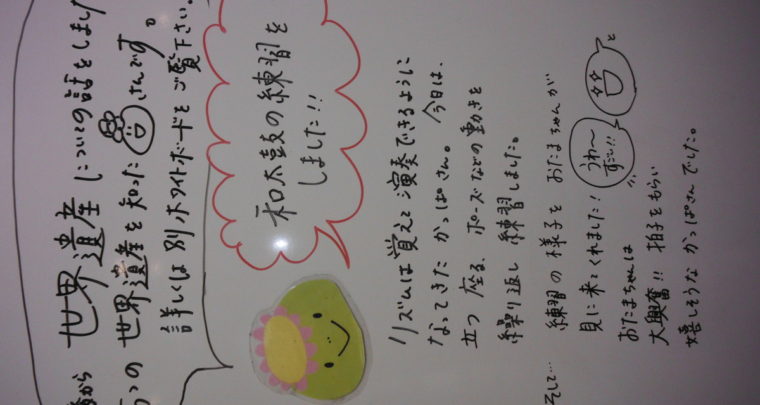 世界遺産についての話をしまし
つの世界遺産を知った さんです。
詳しくは別ホワイトボードをご覧下さい。
和太鼓の練習を
しました!!
リズムは覚えて演奏できるように
なってきたかっぱさん。今日は、
立つ座る、ポーズなどの動きを
繰り返し練習しました。
そして…
練習の様子をおたまちゃんが
見に来てくれました!
うわ〜
すごい!!
と
おたまちゃんは
大興奮!!拍子をもらい
嬉しそうなかっぱさんでした。